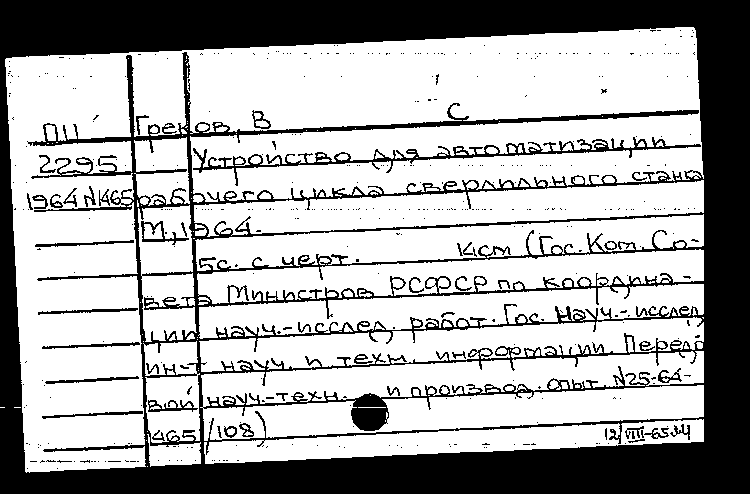 С
П11 Греков, В
2295 Устройство для автоматизации
1964 N1465 рабочего цикла сверлильного станка
М., 1964.
5с. с черт. 14см (Гос. Ком. Со-
вета Министров РСФСР по координа-
ции науч.-исслед. работ. Гос. Науч.-исслед.
ин-т науч. и техн. информации. Передо
вой науч.-техн. и производ. опыт. N25-64-
1465/108)